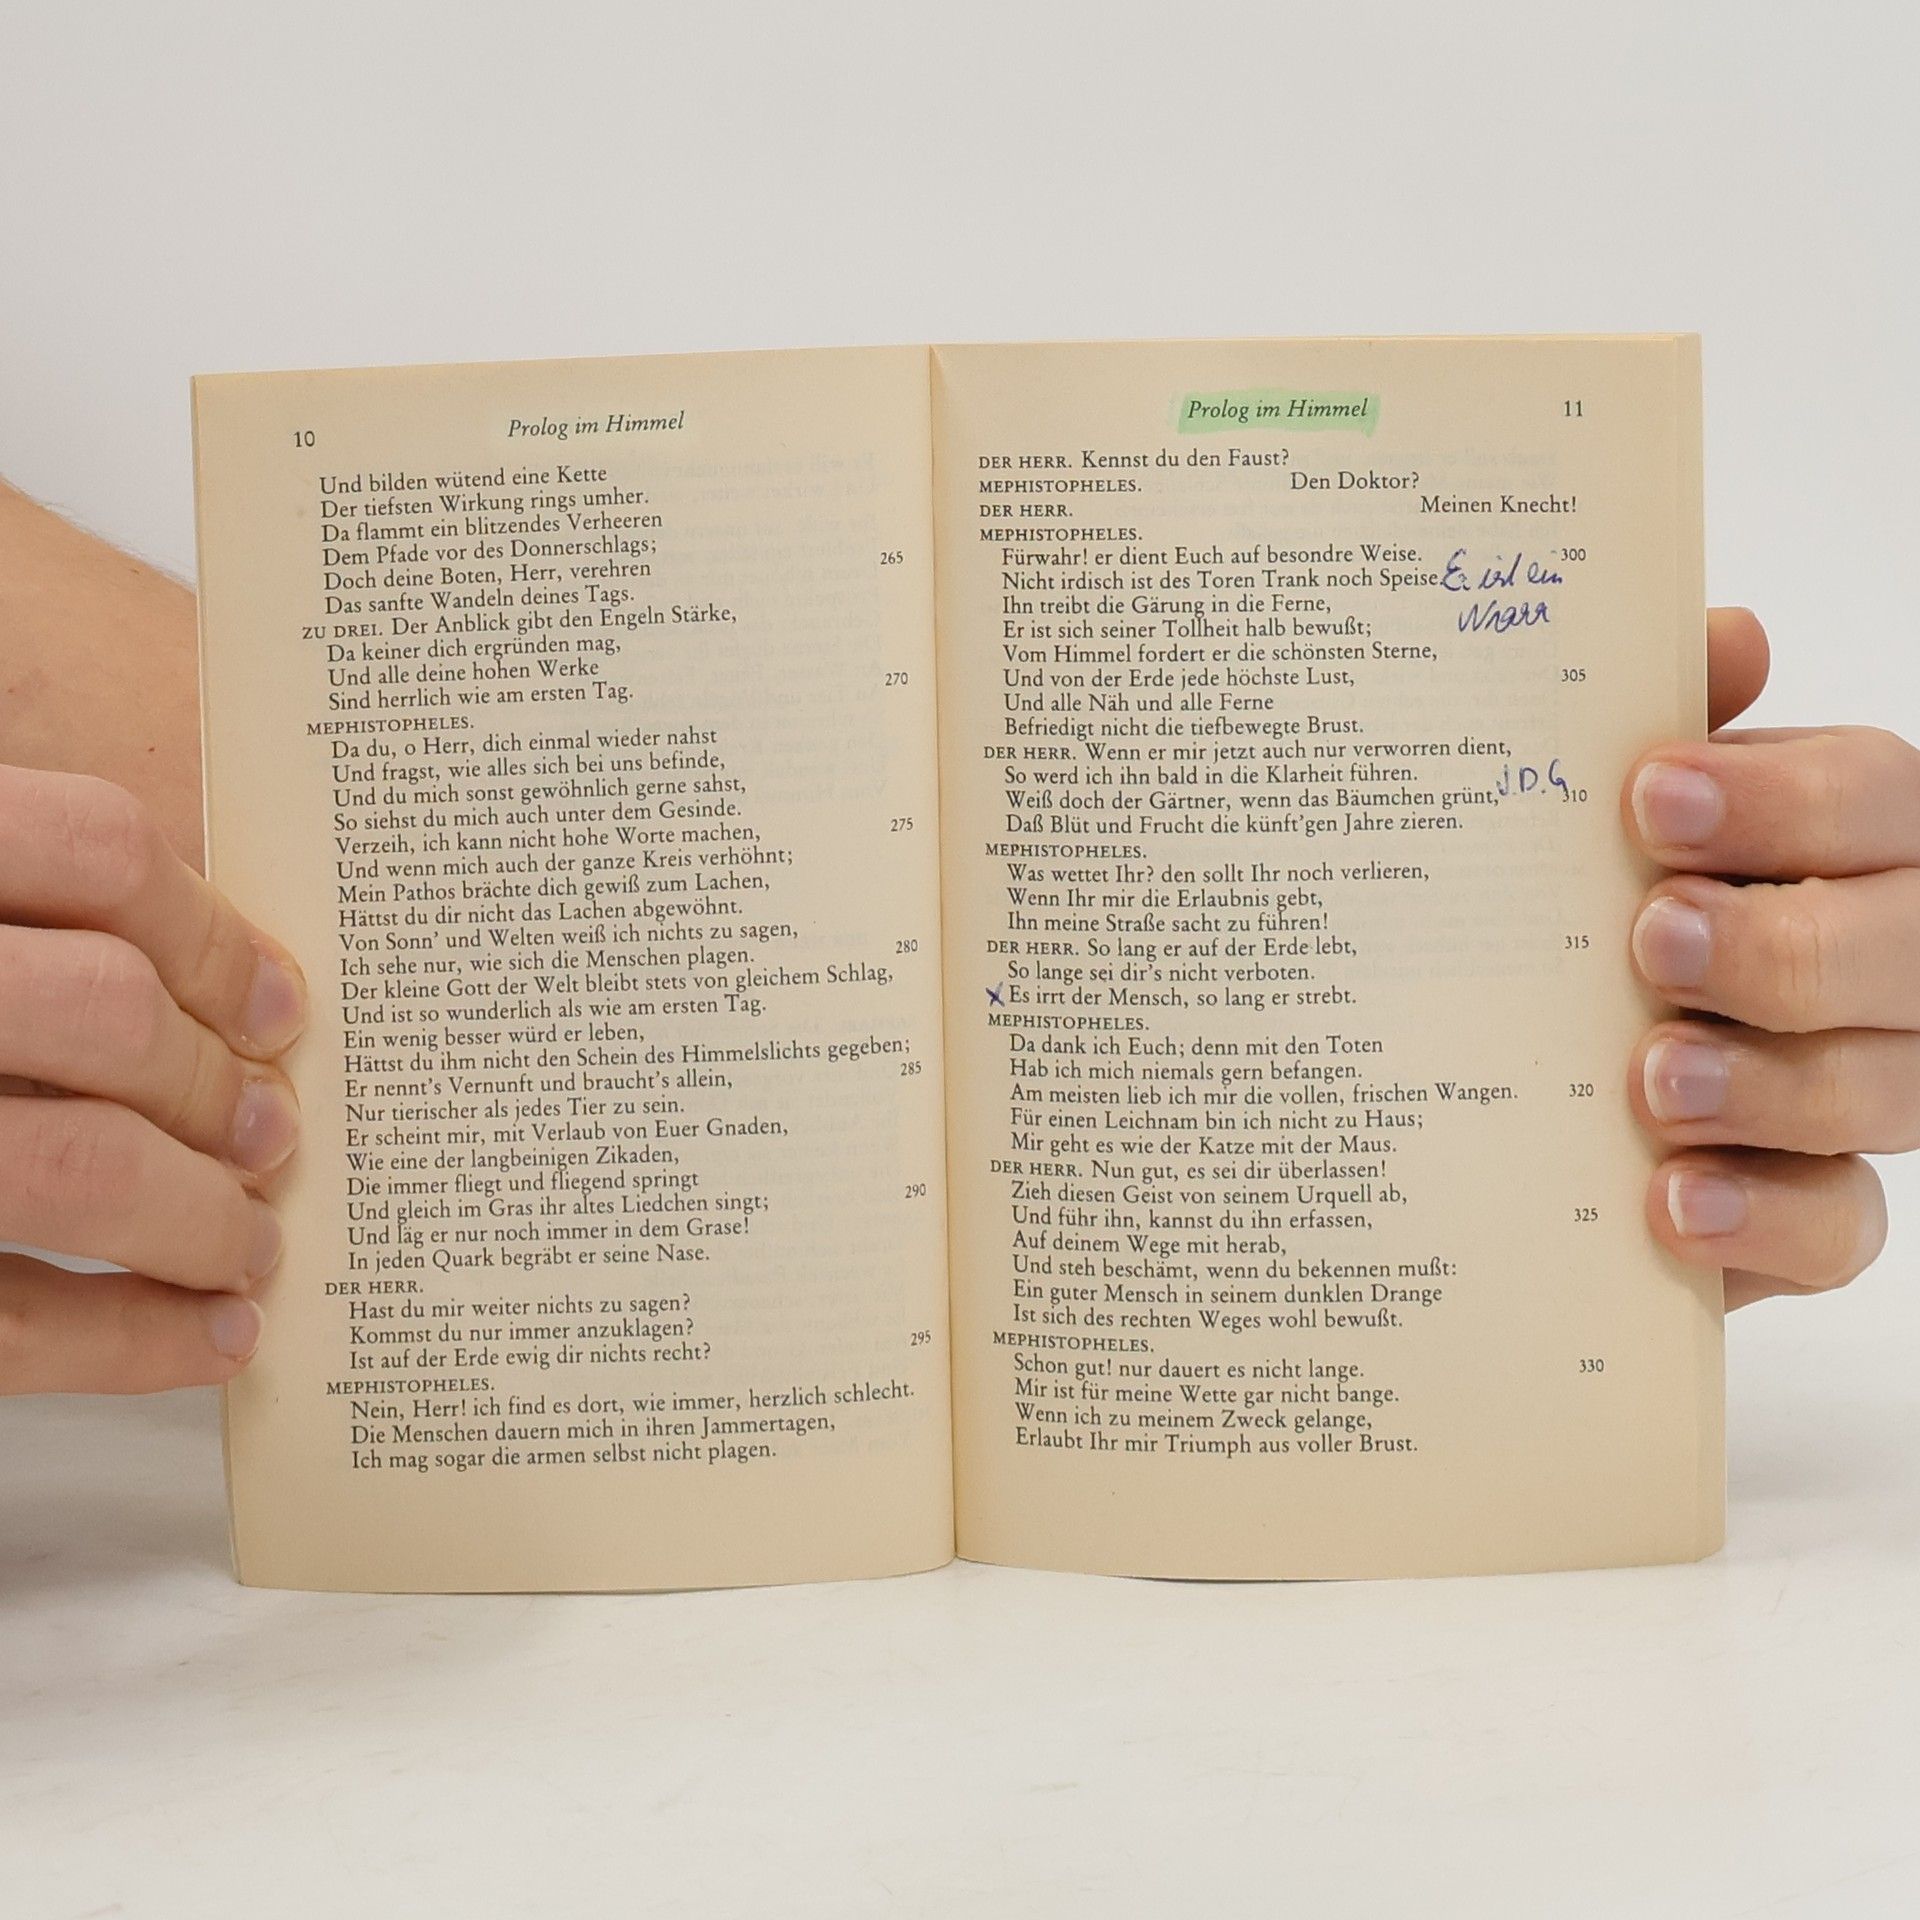 10 Prolog im Himmel
Und bilden wütend eine Kette
Der tiefsten Wirkung rings umher.
Da flammt ein blitzendes Verheeren
Dem Pfade vor des Donnerschlags;
Doch deine Boten, Herr, verehren 265
Das sanfte Wandeln deines Tags.
ZU DREI. Der Anblick gibt den Engeln Stärke,
Da keiner dich ergründen mag,
Und alle deine hohen Werke
Sind herrlich wie am ersten Tag. 270
MEPHISTOPHELES.
Da du, o Herr, dich einmal wieder nahst
Und fragst, wie alles sich bei uns befinde,
Und du mich sonst gewöhnlich gerne sahst,
So siehst du mich auch unter dem Gesinde.
Verzeih, ich kann nicht hohe Worte machen, 275
Und wenn mich auch der ganze Kreis verhöhnt;
Mein Pathos brächte dich gewiß zum Lachen,
Hättst du dir nicht das Lachen abgewöhnt.
Von Sonn’ und Welten weiß ich nichts zu sagen,
Ich sehe nur, wie sich die Menschen plagen. 280
Der kleine Gott der Welt bleibt stets von gleichem Schlag,
Und ist so wunderlich als wie am ersten Tag.
Ein wenig besser würd er leben,
Hättst du ihm nicht den Schein des Himmelslichts gegeben;
Er nennt’s Vernunft und braucht’s allein, 285
Nur tierischer als jedes Tier zu sein.
Er scheint mir, mit Verlaub von Euer Gnaden,
Wie eine der langbeinigen Zikaden,
Die immer fliegt und fliegend springt
Und gleich im Gras ihr altes Liedchen singt; 290
Und läg er nur noch immer in dem Grase!
In jeden Quark begräbt er seine Nase.
DER HERR.
Hast du mir weiter nichts zu sagen?
Kommst du nur immer anzuklagen?
Ist auf der Erde ewig dir nichts recht? 295
MEPHISTOPHELES.
Nein, Herr! ich find es dort, wie immer, herzlich schlecht.
Die Menschen dauern mich in ihren Jammertagen,
Ich mag sogar die armen selbst nicht plagen.
Prolog im Himmel 11
DER HERR. Kennst du den Faust?
MEPHISTOPHELES. Den Doktor?
DER HERR. Meinen Knecht!
MEPHISTOPHELES.
Fürwahr! er dient Euch auf besondre Weise. 300
Nicht irdisch ist des Toren Trank noch Speise. Er ist ein
Ihn treibt die Gärung in die Ferne,
Narr
Er ist sich seiner Tollheit halb bewußt;
Vom Himmel fordert er die schönsten Sterne,
Und von der Erde jede höchste Lust, 305
Und alle Näh und alle Ferne
Befriedigt nicht die tiefbewegte Brust.
DER HERR. Wenn er mir jetzt auch nur verworren dient,
So werd ich ihn bald in die Klarheit führen.
J.D.G
Weiß doch der Gärtner, wenn das Bäumchen grünt, 310
Daß Blüt und Frucht die künft’gen Jahre zieren.
MEPHISTOPHELES.
Was wettet Ihr? den sollt Ihr noch verlieren,
Wenn Ihr mir die Erlaubnis gebt,
Ihn meine Straße sacht zu führen!
DER HERR. So lang er auf der Erde lebt, 315
So lange sei dir’s nicht verboten.
x Es irrt der Mensch, so lang er strebt.
MEPHISTOPHELES.
Da dank ich Euch; denn mit den Toten
Hab ich mich niemals gern befangen.
Am meisten lieb ich mir die vollen, frischen Wangen. 320
Für einen Leichnam bin ich nicht zu Haus;
Mir geht es wie der Katze mit der Maus.
DER HERR. Nun gut, es sei dir überlassen!
Zieh diesen Geist von seinem Urquell ab,
Und führ ihn, kannst du ihn erfassen, 325
Auf deinem Wege mit herab,
Und steh beschämt, wenn du bekennen mußt:
Ein guter Mensch in seinem dunklen Drange
Ist sich des rechten Weges wohl bewußt.
MEPHISTOPHELES.
Schon gut! nur dauert es nicht lange. 330
Mir ist für meine Wette gar nicht bange.
Wenn ich zu meinem Zweck gelange,
Erlaubt Ihr mir Triumph aus voller Brust.